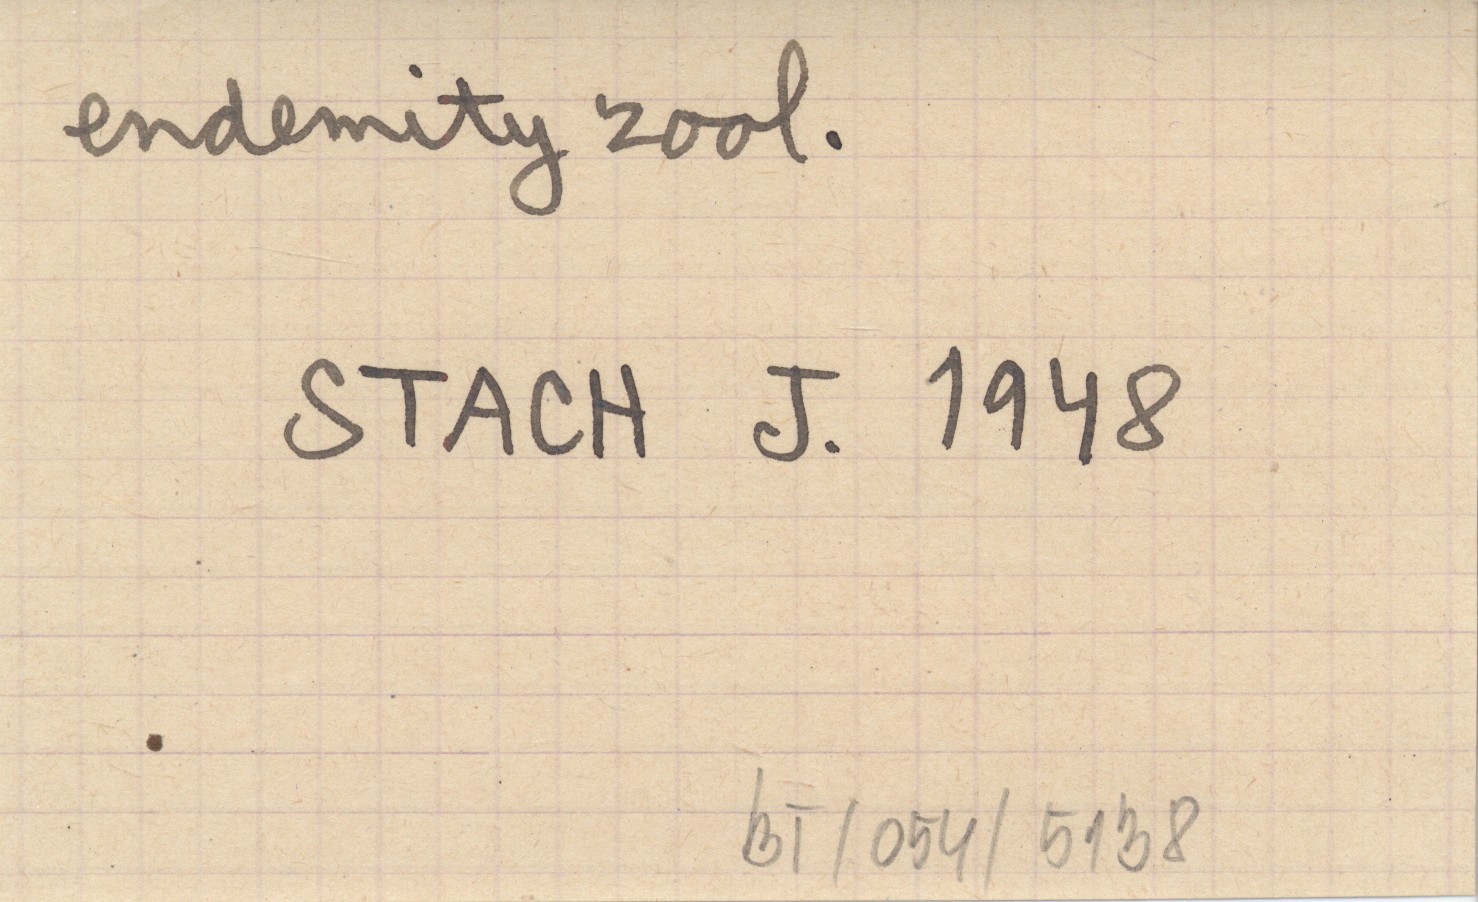 endemity zool.
STACH J. 1948
BT/054/5138